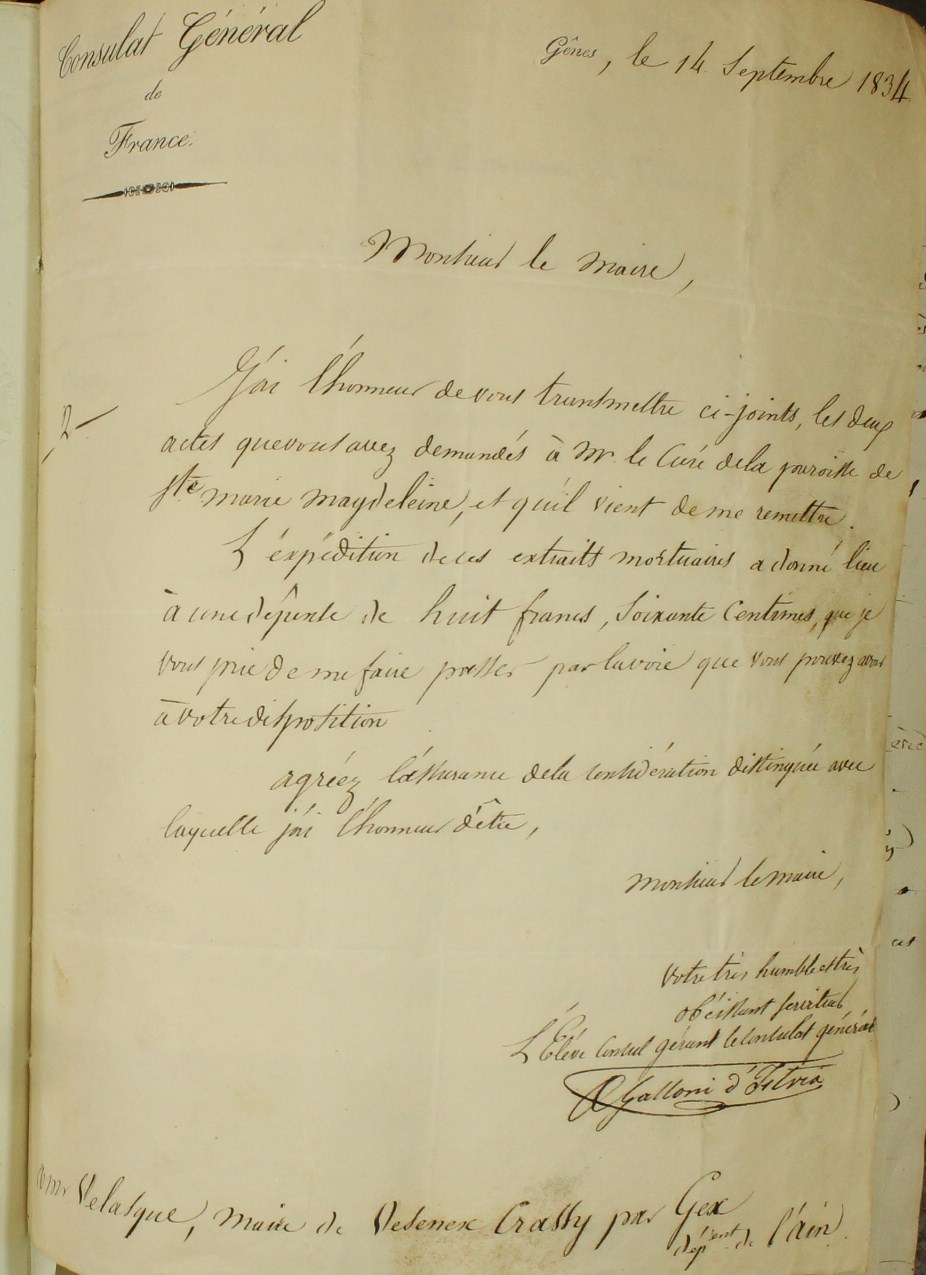 Consulat Général
de
France.
Gênes, le 14 Septembre 1834
Monsieur le Maire,
2
J'ai l'honneur de vous transmettre ci-joints, les deux
actes que vous avez demandés à Mr. le Curé de la paroisse de
Ste marie Magdeleine, et qu'il vient de me remettre.
L'éxpédition de ces extraits mortuaires a donné lieu
à une dépense de huit francs, Soixante Centimes, que je
vous prie de me faire passer par la voie que vous pouvez avoir
à votre disposition
agréez l'assurance de la considération distinguée avec
laquelle j'ai l'honneur d'être,
Monsieur le maire,
Votre très humble et très
obéissant serviteur
L'Élève Consul gérant le Consulat général
Galloni d'Istria
a Mr Velasque, Maire de Vesenex Crassy par Gex
dépent de l'ain.